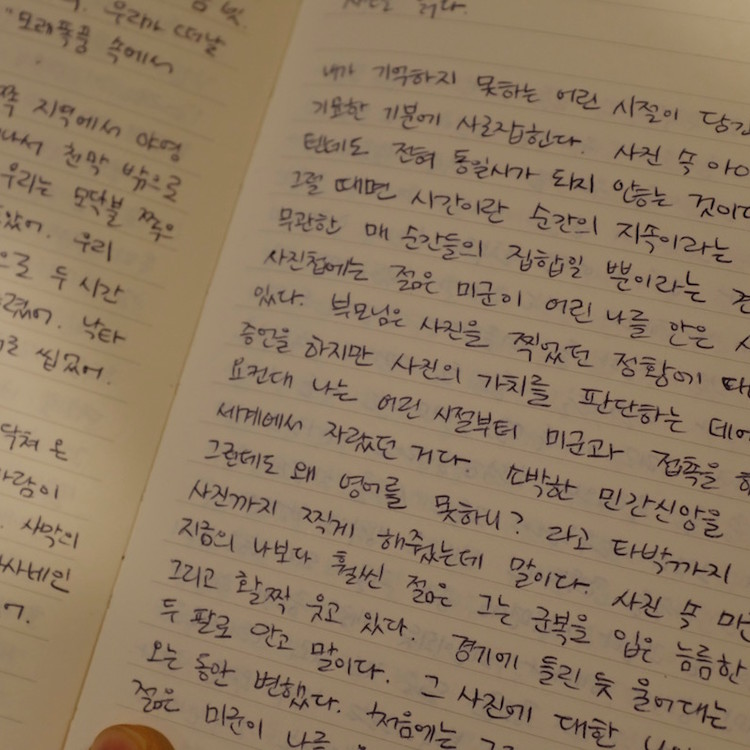 우리가 떠날
"모래폭풍 속에서
쪽 지역에서 야영
나서 천막 밖으로
우리는 모닥불 쪽으
았어. 우리
으로 두 시간
렸어. 낙타
로 씹었어.
닥쳐 온
바람이
사막의
내가 기억하지 못하는 어린 시절이 담긴
기묘한 기분에 사로잡힌다. 사진 속 아이
텐데도 전혀 동일시가 되지 않는 것이다
그럴 때면 시간이란 순간의 지속이라는
무관한 매 순간들의 집합일 뿐이라는
사진첩에는 젊은 미군이 어린 나를 안은
있다. 부모님은 사진을 찍었던 정황에
증언을 하지만 사진의 가치를 판단하는 데에
요컨대 나는 어린 시절부터 미군과 접촉을
세계에서 자랐던 거다. 소박한 민간신앙을
그런데도 왜 영어를 못하니? 라고 타박까지
사진까지 찍게 해주었는데 말이다. 사진 속
지금의 나보다 훨씬 젊은 그는 군복을 입은 늠름한
그리고 활짝 웃고 있다. 경기에 들린 듯 울어대는
두 팔로 안고 말이다. 그 사진에 대한
오는 동안 변했다. 처음에는
젊은 미군이 나를